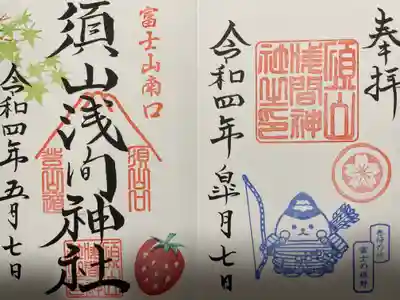 奉拝
須山浅間神社之印
令和四年皐月七日
富士の裾野
富士山南口
須山浅间神社
須山口
登山道
令和四年五月七日